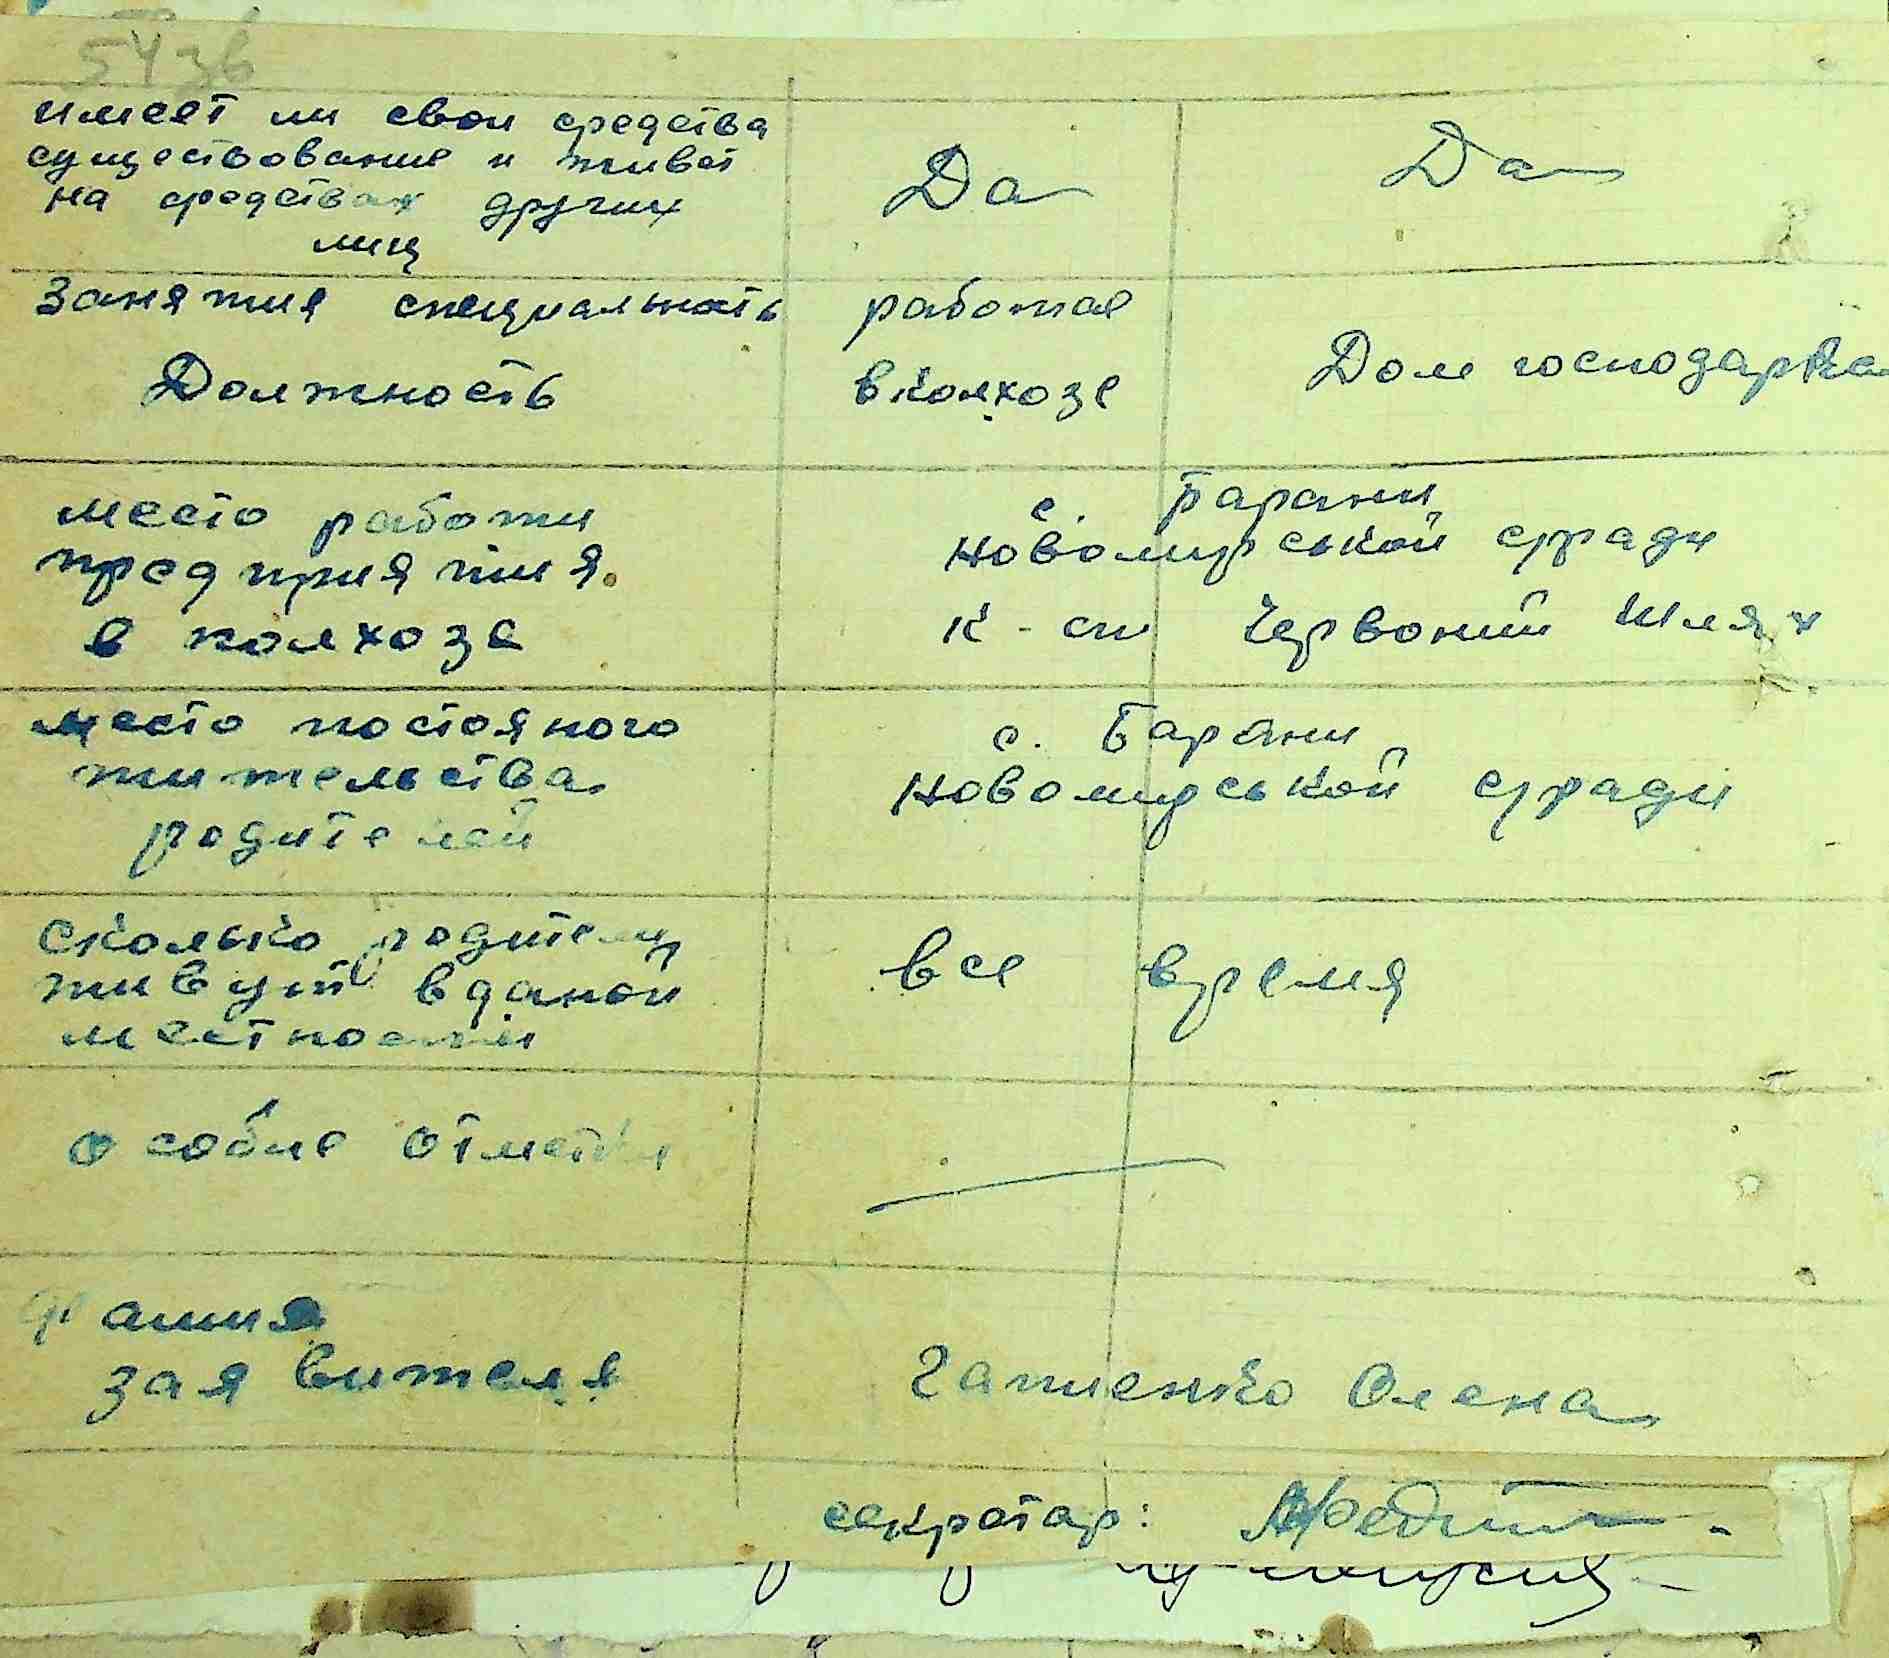 543б
имеет ли свои средства
существование и живет
на средствах других
лиц
Да
Да
Занятия специальность
Должность
работае
в колхозе
Дом господарка
место работи
предприятия.
в колхозе
с. Барани
Новомирськой с/ради
к-сп Червоний Шлях
место постояного
жительства
родителей
с. Барани
Новомирськой с/ради
сколько родители
живут в даной
местности
все время
особие отметки
заявителя
Гатиенко Олена
секретар: